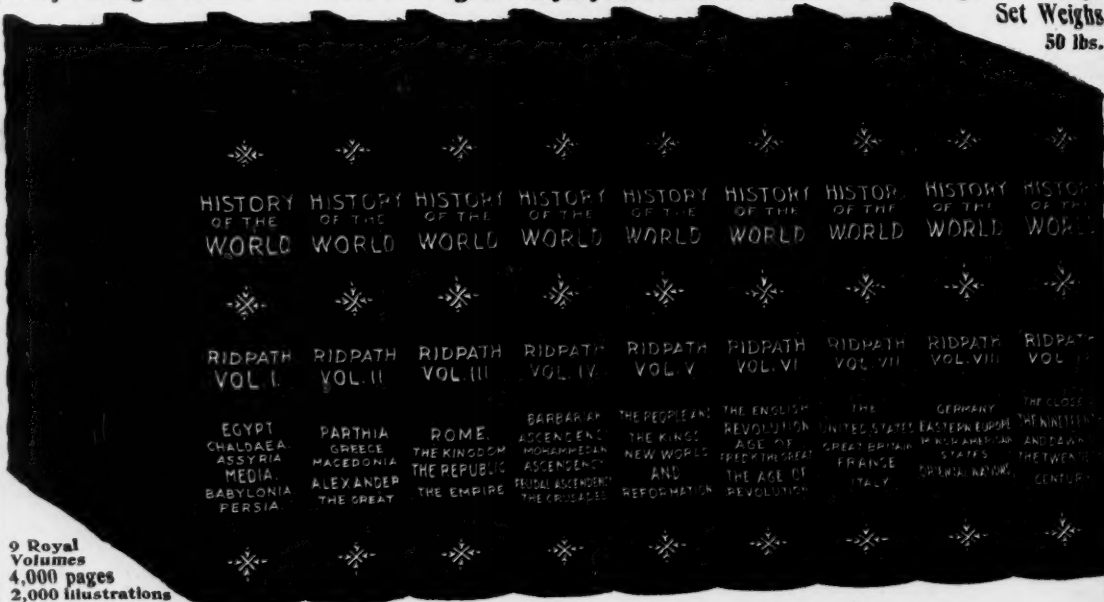 Set Weighs
50 lbs.
HISTORY
OF THE
WORLD
RIDPATH
VOL. I.
EGYPT
CHALDAEA.
ASSYRIA
MEDIA.
BABYLONIA
PERSIA.
HISTORY
OF THE
WORLD
RIDPATH
VOL. II
PARTHIA
GREECE
MACEDONIA
ALEXANDER
THE GREAT
HISTORY
OF THE
WORLD
RIDPATH
VOL. III
ROME.
THE KINGDOM
THE REPUBLIC
THE EMPIRE
HISTORY
OF THE
WORLD
RIDPATH
VOL. IV
BARBARIAN
ASCENDENCY
MOHAMMEDAN
ASCENDENCY
FEUDAL ASCENDENCY
THE CRUSADES
HISTORY
OF THE
WORLD
RIDPATH
VOL. V
THE PEOPLE AND
THE KINGS
NEW WORLD
AND
REFORMATION
HISTORY
OF THE
WORLD
RIDPATH
VOL. VI
THE ENGLISH
REVOLUTION
AGE OF
FREDK THE GREAT
THE AGE OF
REVOLUTION
HISTOR
OF THE
WORLD
RIDPATH
VOL. VII
THE
UNITED STATES
GREAT BRITAIN
FRANCE
ITALY
HISTORY
OF THE
WORLD
RIDPATH
VOL. VIII
GERMANY
EASTERN EUROPE
MINOR AMERICAN
STATES
ORIENTAL NATIONS
HISTOR
OF THE
WORL
RIDPATH
VOL
THE CLOSE
THE NINETEENTH
AND DAWN
THE TWENTIETH
CENTURY
9 Royal
Volumes
4,000 pages
2,000 illustrations